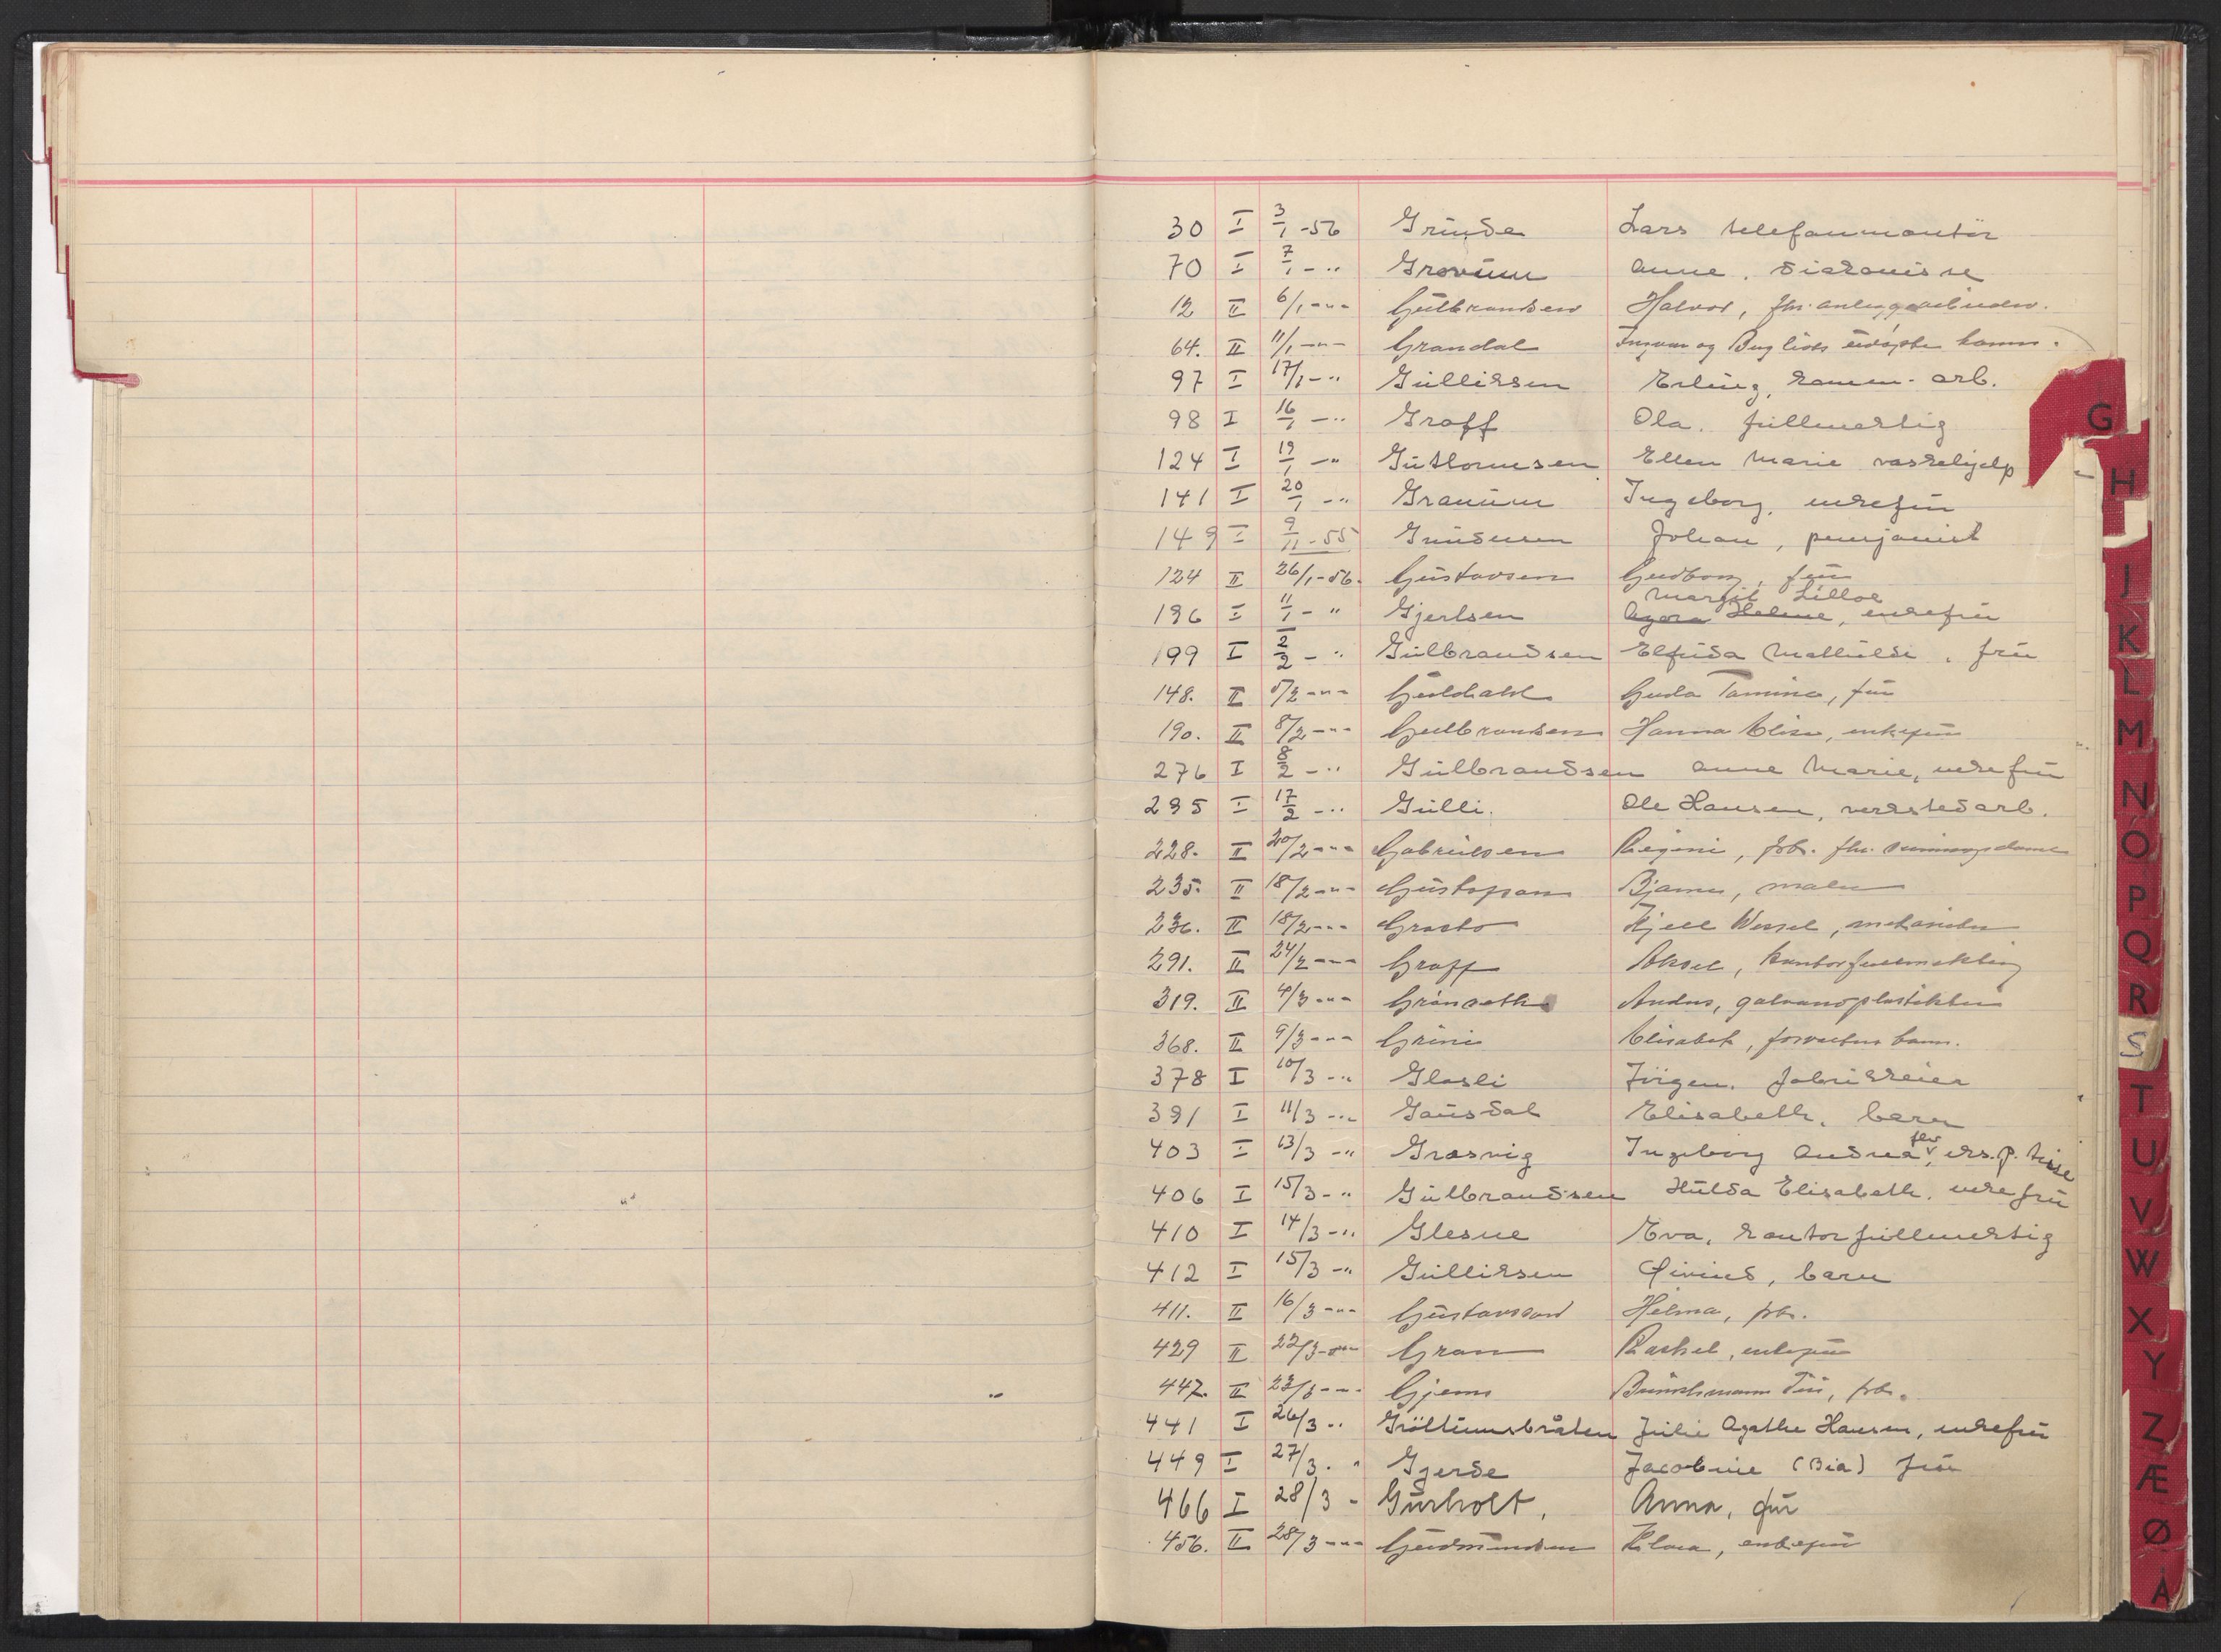 30 I 3/1 -56 Gründe Lars telefonmontör
70 I 7/1 - " Grovüm Anne. diakonisse
12 II 6/1 - " - Gulbrandsen Halvor, fhv. anleggsarbeider.
64. II 11/1 - " - Grandal Ingunn og Bergliots barn.
97 I 17/1 - " Gülliksen Erling, komm. arb.
98 I 16/1 - " Graff Ola. füllmektig
124 I 19/1 - " Güthormsen Ellen Marie vaskehjelp
141 I 20/1 - " Granüm Ingeborg. enkefrü
149 I 9/11 -55 Gründesen Johan, pensjonist
124 II 26/1 -56. Güstavsen Gudborg, frü
Margit Lilloe
196 I 11/1 - " Gjertsen Agora Helene, enkefrü
199 I 2/2 - " Gülbrandsen Elfrida Mathilde. frü
148. II 5/2 - " - Guldahl Gerda Tomine, frü
190. II 8/2 - " - Gulbrandsen Hanna Elise, enkefrü
276 I 8/2 - " Gülbrandsen Anne Marie, enkefrü
295 I 17/2 - " Gülli. Ole Hansen, verkstedarb.
228. II 20/2 - " - Gabrielsen Regine, frk. fhv.
235. II 18/2 - " - Güstafson Bjarne, maler
236. II 18/2 - " - Grasto Kjell Wessel, mekaniker
291. II 24/2 - " - Graff Aksel, kontorfullmektig
319. II 4/3 - " - Grönseth Anders, galvanoplastiker
368. II 9/3 - " - Grini Elisabeth, barn.
378 I 10/3 - " Glasli Jörgen. fabrikkeier
391 I 11/3 - " Gaüsdal Elisabeth. barn
403 I 13/3 - " Grasvig Ingeborg Andrea, fhv. eks.p. tisse
406 I 15/3 - " Gülbrandsen Hülda Elisabeth. enkefrü
410 I 14/3 - " Glesne Eva, kontorfüllmektig
412 I 15/3 - " Gülliksen Öivind, barn
411. II 16/3 - " - Güstavsson Hilma, frk.
429 II 22/3 - " - Gran Rakel, enkefrü
447. II 23/3 - " - Gjems frk.
441 I 26/3 - " Gröttümsbråten Jülie Agathe Hansen, enkefrü
449 I 27/3 . " Gjerde Jacobine (Bia) frü
466 I 28/3 - Gürholt. Anna, frü
456. II 28/3 - " - Güdmündsen Klara, enkefrü
G
H
I
J
K
L
M
N
O
P
Q
R
S
T
U
V
W
X
Y
Z
Æ
Ø
Å